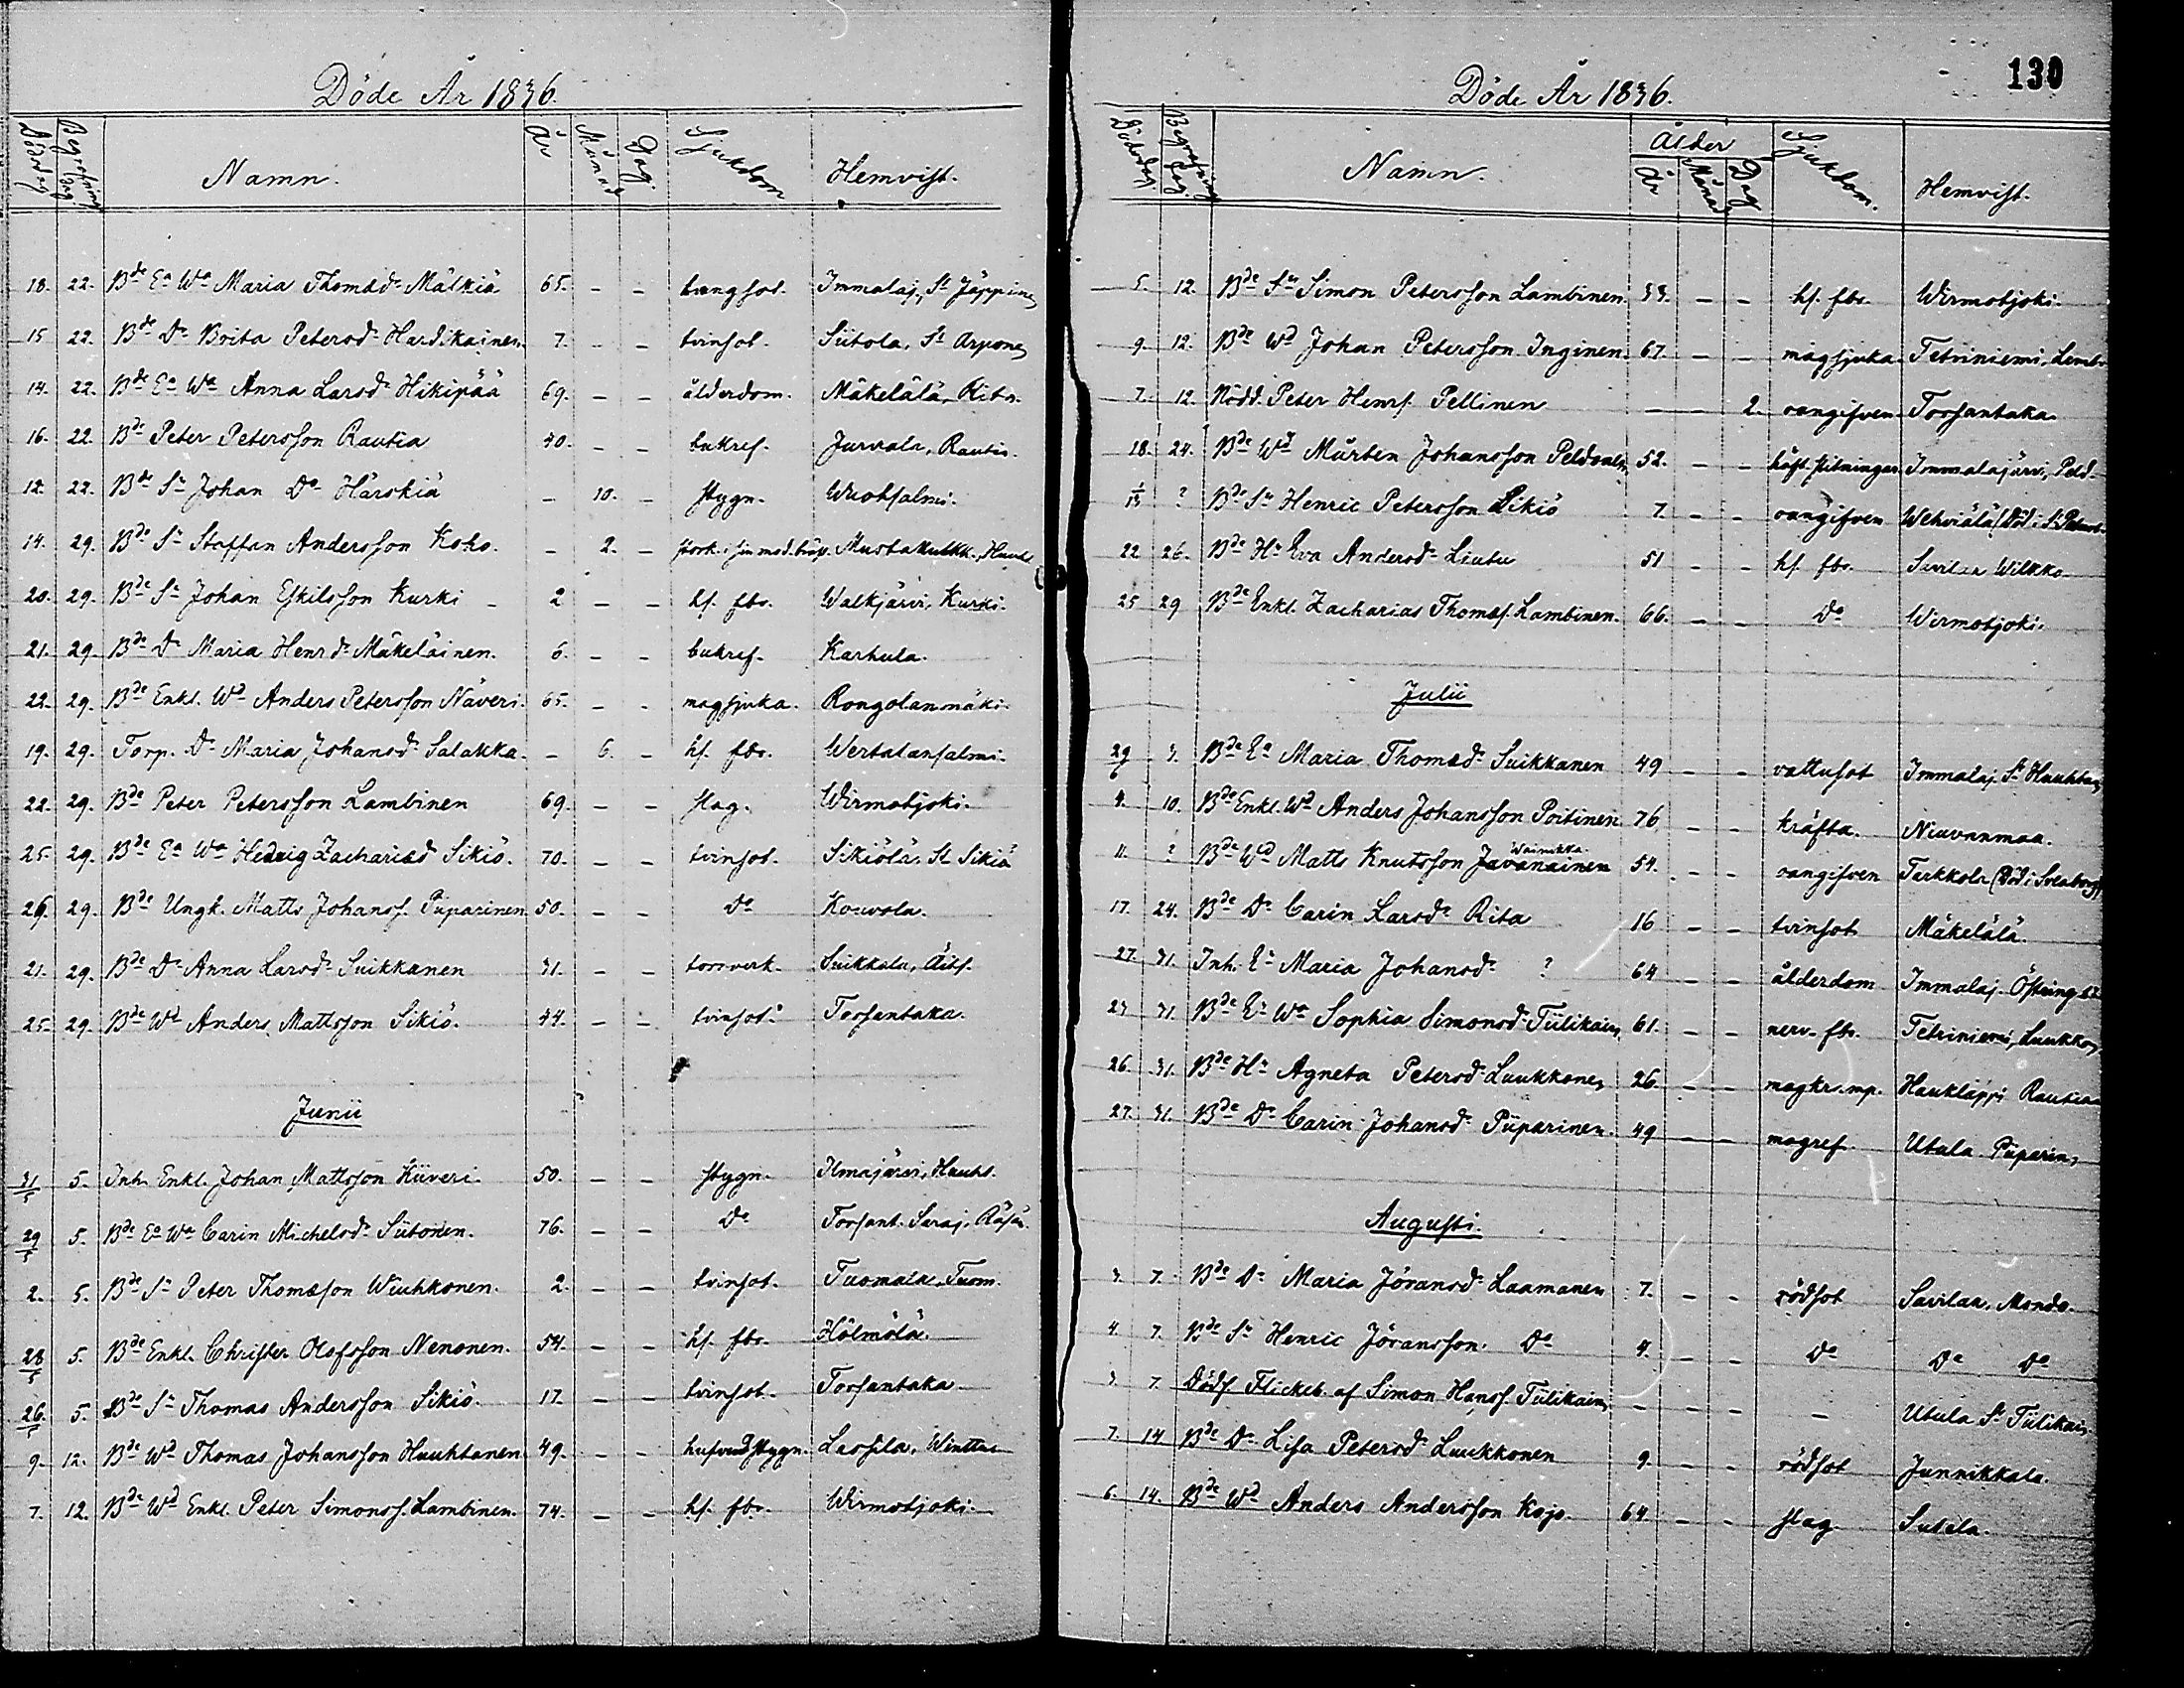 Döde År 1836.
Dödsdag Begrafnings dag Namn. År Månad Dag. Sjukdom Hemvist.
18. 22. Bde Ea Wa Maria Thomædr Mälkiä 65. - - lungsot. Immalaj., St Jäppinen
15 22. Bde Dr Brita Petersdr Hardikainen 7. - - tvinsot. Siitola, St Arponen
14. 22. Bde Ea Wa Anna Larsdr Hikipää 69. - - ålderdom. Mäkelälä, Rita.
16. 22. Bde Peter Petersson Rautia 40. - - bukref. Jurvala, Rautia.
12. 22. Bde Sn Johan Do Härskiä - 10. - stygn. Wuoksalmi.
14. 29. Bde Sn Staffan Andersson Koho. - 2. - Mustakulkk., Huuht.
20. 29. Bde Sn Johan Eskilsson Kurki - 2 - - hs. fbr. Walkjärvi, Kurki.
21. 29. Bde Dr Maria Henrdr Mäkeläinen. 6. - - bukref. Karhula.
22. 29. Bde Enkl. Wd Anders Petersson Näveri. 65. - - magsjuka. Rongolanmäki.
19. 29. Torp. Dr Maria Johansdr Salakka. - 6. - hs. fbr. Wertalansalmi.
22. 29. Bde Peter Petersson Lambinen 69. - - slag. Wirmotjoki.
25. 29. Bde Ea Wa Hedvig Zachariæd Sikiö. 70. - - tvinsot. Sikiölä, St Sikiä
26. 29. Bde Ungk. Matts Johanss. Piiparinen 50. - - Do Kouvola.
21. 29. Bde Dr Anna Larsdr Suikkanen 31. - - torrverk. Suikkala, Äits.
25. 29. Bde Wd Anders Mattsson Sikiö. 44. - - tvinsot. Torsantaka.
Junii
31/5 5. Inh. Enkl. Johan Mattsson Kiiveri. 50. - - stygn. Ilmajärvi, Huuht.
29/5 5. Bde Ea Wa Carin Michelsdr Siitonen. 76. - - Do Torsant. Saraj. Räsän.
2. 5. Bde Sn Peter Thomæson Wiuhkonen. 2. - - tvinsot. Tuomala, Tuom.
28/5 5. Bde Enkl. Christer Olofsson Nenonen. 54. - - hs. fbr. Hölmölä.
26/5 5. Bde Sn Thomas Andersson Sikiö. 17. - - tvinsot. Torsantaka.
9. 12. Bde Wd Thomas Johansson Huuhtanen 49. - - hufvudstygn. Lassila, Winttur
7. 12. Bde Wd Enkl. Peter Simonss. Lambinen. 74. - - hs. fbr. Wirmotjoki.
130
Döde År 1836.
Dödsdag Begrafnings dag. Namn. Ålder År Månad Dag Sjukdom. Hemvist.
5. 12. Bde Sn Simon Petersson Lambinen. 33. - - hs. fbr. Wirmotjoki.
9. 12. Bde Wd Johan Petersson Inginen. 67. - - magsjuka. Tetriniemi, Lemb.
7. 12. Nödd. Peter Henrs. Pellinen - - 2. oangifven Torsantaka.
18. 24. Bde Wd Mårten Johansson Peldonen 52. - - håft. stitningar Immalajärvi, Peld.
1/13 ? Bde Sn Henric Petersson Sikiö 7. - - oangifven Wehviälä (Död i St Petersb.
22 26. Bde Hu Eva Andersdr Liutu 51 - - hs. fbr. Savilax Wilkko
25 29 Bde Enkl. Zacharias Thomæs. Lambinen. 66. - - Do Wirmotjoki.
Julii
29/6 3. Bde Ea Maria Thomædr Suikkanen 49 - - vattusot Immalaj. St Huuhtan
4. 10. Bde Enkl. Wd Anders Johansson Poitinen 76 - - kräfta. Niuvanmaa.
Wainikka
11. ? Bde Wd Matts Knutsson Javanainen 54. - - oangifven Terkkola (Död i Sveaborg)
17. 24. Bde Dr Carin Larsdr Rita 16 - - tvinsot Mäkelälä.
27. 31. Inh. Ea Maria Johansdr ? 64 - - ålderdom Immalaj. Östring
23 31. Bde Ea Wa Sophia Simonsdr Tiilikain 61. - - nerv. fbr. Tetriniemi, Luukkon
26. 31. Bde Hu Agneta Petersdr Luukkonen 26. - - magkramp. Hauklappi Rautian
27. 31. Bde Dr Carin Johansdr Piiparinen. 49 - - magref. Utula Piiparin
Augusti.
3. 7. Bde Dr Maria Jöransdr Laamanen 7. - - rödsot Savilax, Mondo.
4. 7. Bde Sn Henric Jöransson. Do 4. - - Do Do Do
3. 7. Dödf. Flickeb. af Simon Hanss. Tiilikain - - - - Utula St Tiilikain.
7. 14 Bde Dr Lisa Petersdr Luukkonen 9. - - rödsot Junnikkala.
6. 14. Bde Wd Anders Andersson Kojo. 64 - - slag. Sutela.